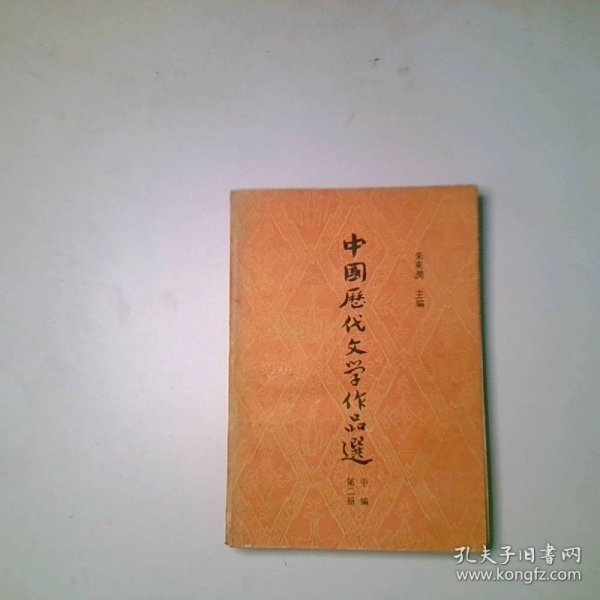 朱東潤 主编
中國歷代文学作品選
中编
第二册
孔夫子旧书网
www.kongfz.com